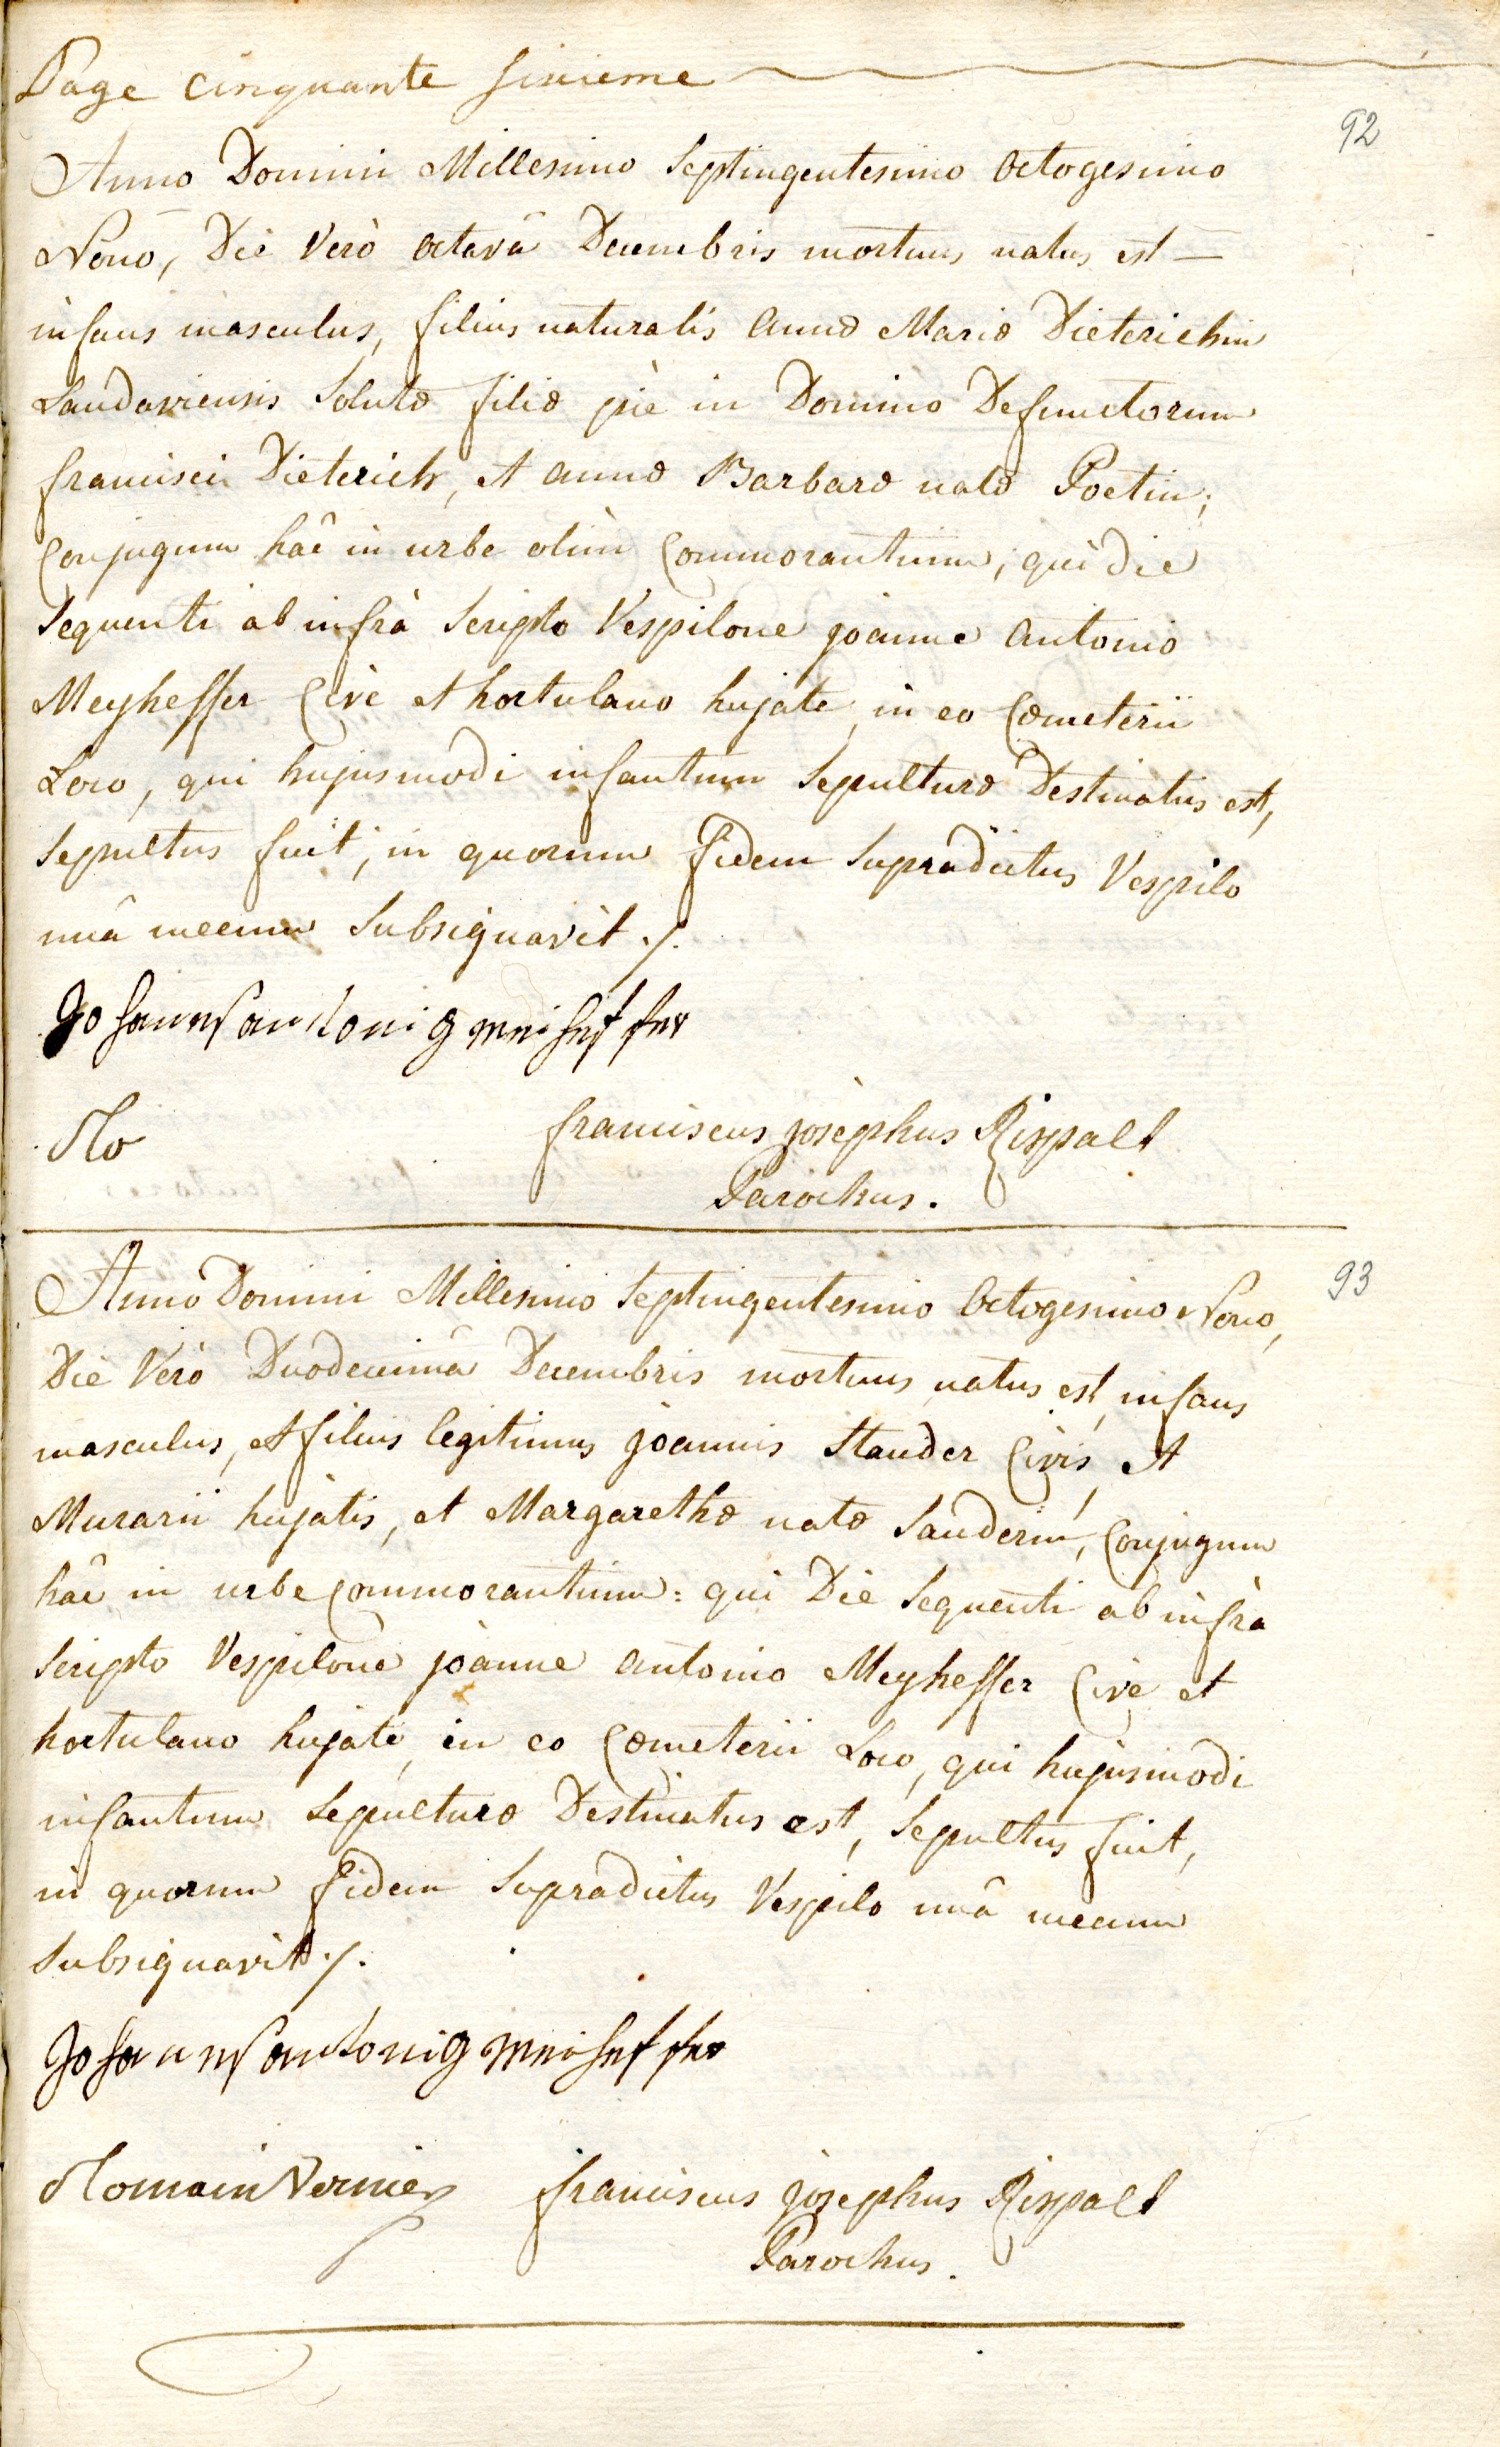 Page cinquante sixieme
92
Anno Domini Millesimo Septingentesimo Octogesimo
Nono, Die Verò octavâ Decembris mortuus natus est —
infans masculus, filius naturalis Annæ Mariæ Dieterichin
Landaviensis Solutæ filiæ piè in Domino Defunctorum
francisci Dieterich, et annæ Barbaræ natæ Poetin;
Conjugum hâc in urbe olìm Commorantium; qui die
Sequenti ab infrà Scripto Vespilone joanne Antonio
Meyheffer Cive et hortulano hujate, in eo Cœmeterii
Loco, qui hujusmodi infantum Sepulturæ Destinatus est,
Sepultus fuit; in quorum fidem Supradictus Vespilo
unâ mecum Subsignavit ./.
Johannes antonig meiheffer
Ro
franciscus josephus Rixpalt
Parochus.
93
Anno Domini Millesimo Septingentesimo Octogesimo Nono,
Die Verò Duodecimâ Decembris mortuus natus est, infans
masculus, et filius legitimus joannis Stauder Civis, et
Murarii hujatis, et Margarethæ natæ Sauderin, Conjugum
hâc in urbe Commorantium: qui Die Sequenti ab infrà
Scripto Vespilone joanne antonio Meyheffer Cive et
hortulano hujate, in eo Cœmeterii Loco, qui hujusmodi
infantum Sepulturæ Destinatus est, Sepultus fuit,
in quorum fidem Supradictus Vespilo unâ mecum
Subsignavit ./.
Johannes antonig meiheffer
Romain Vernier
franciscus josephus Rixpalt
Parochus.